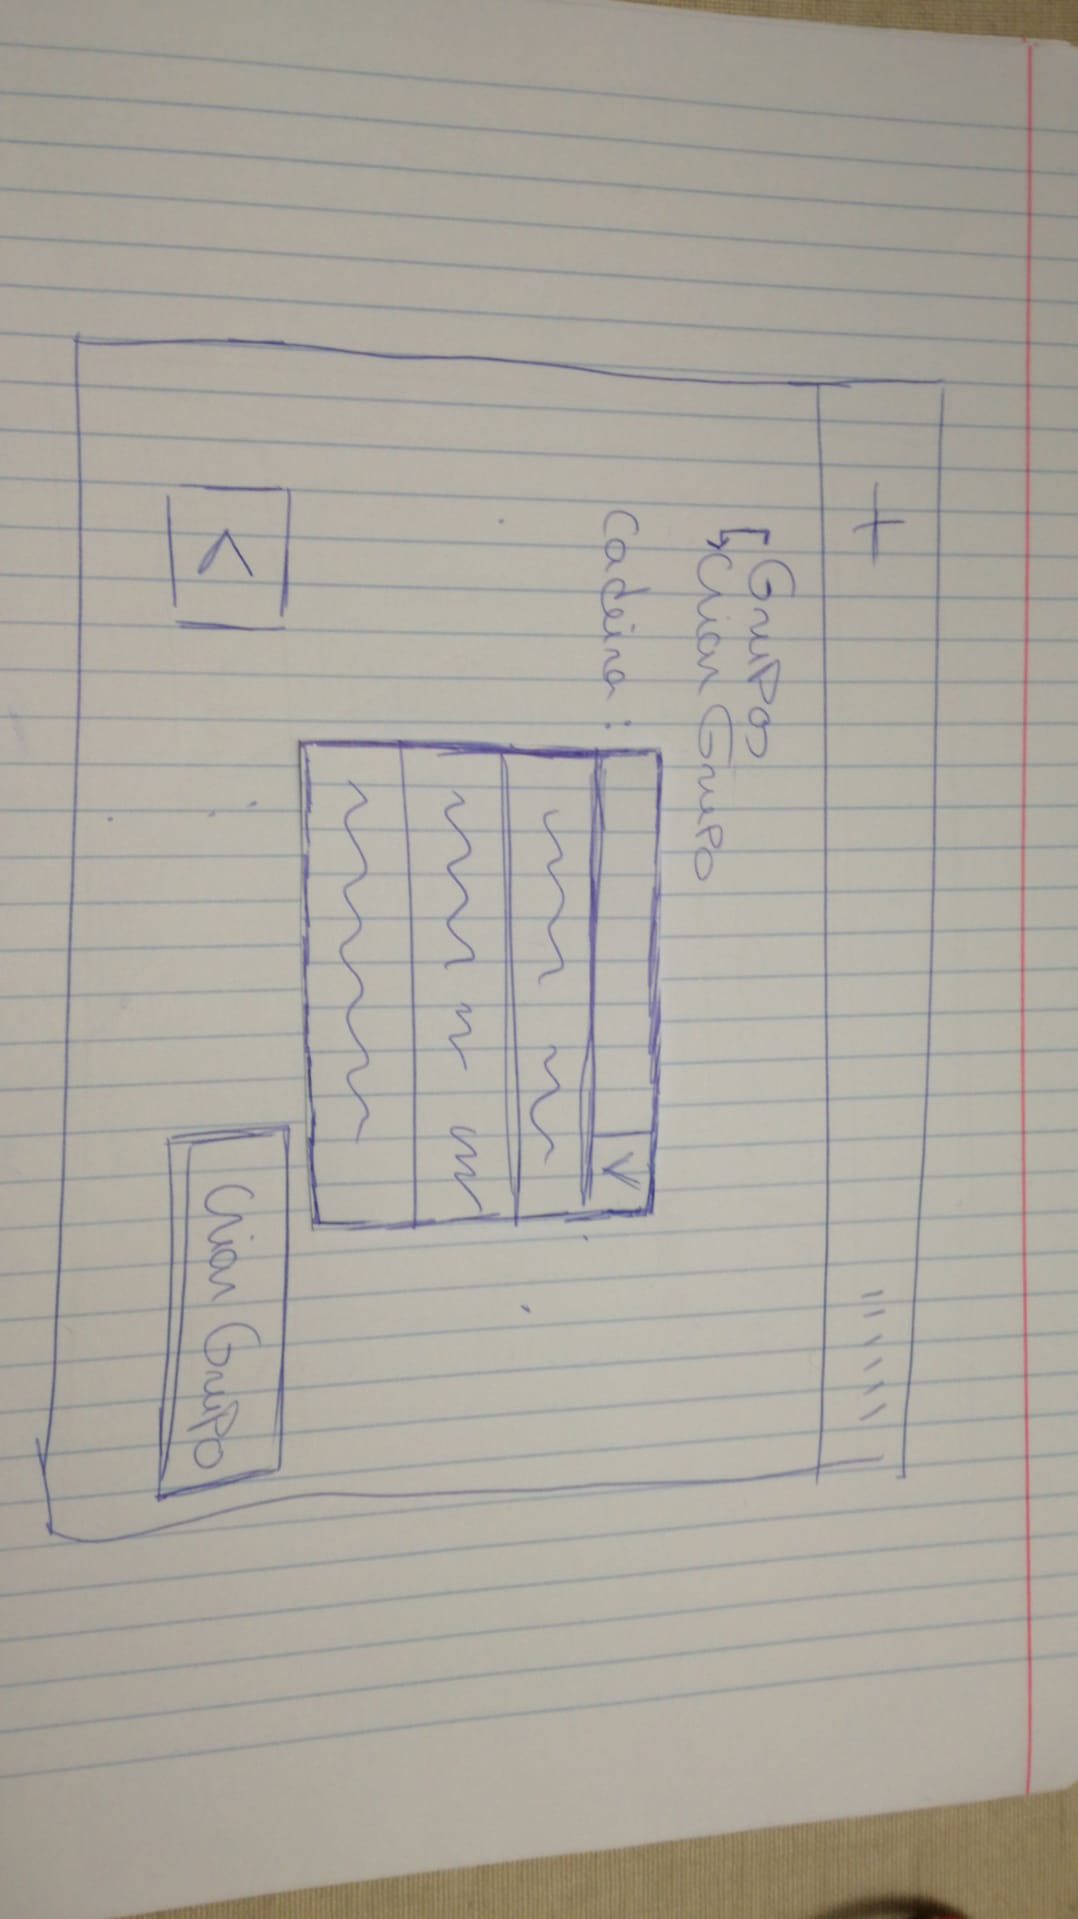 +
Grupos
Criar Grupo
Cadeira :
V
<
Criar Grupo